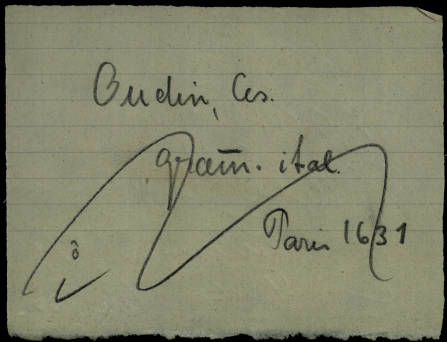 Oudin, Ces.
gram̅. ital.
Paris 1631